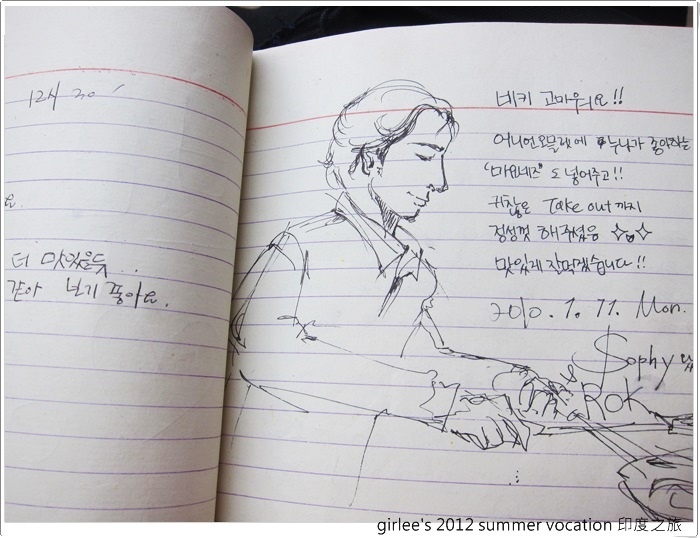 12시 30
요.
더 맛있을듯...
같아 보기 좋아요.
비키 고마워요!!
어니언오믈렛에 누나가 좋아하는
"마요네즈"도 넣어주고!!
귀찮은 Take out 까지
정성껏 해주셨음
맛있게 잘먹겠습니다!!
2010. 1. 11. Mon.
Sophy
ROK
girlee's 2012 summer vocation 印度之旅